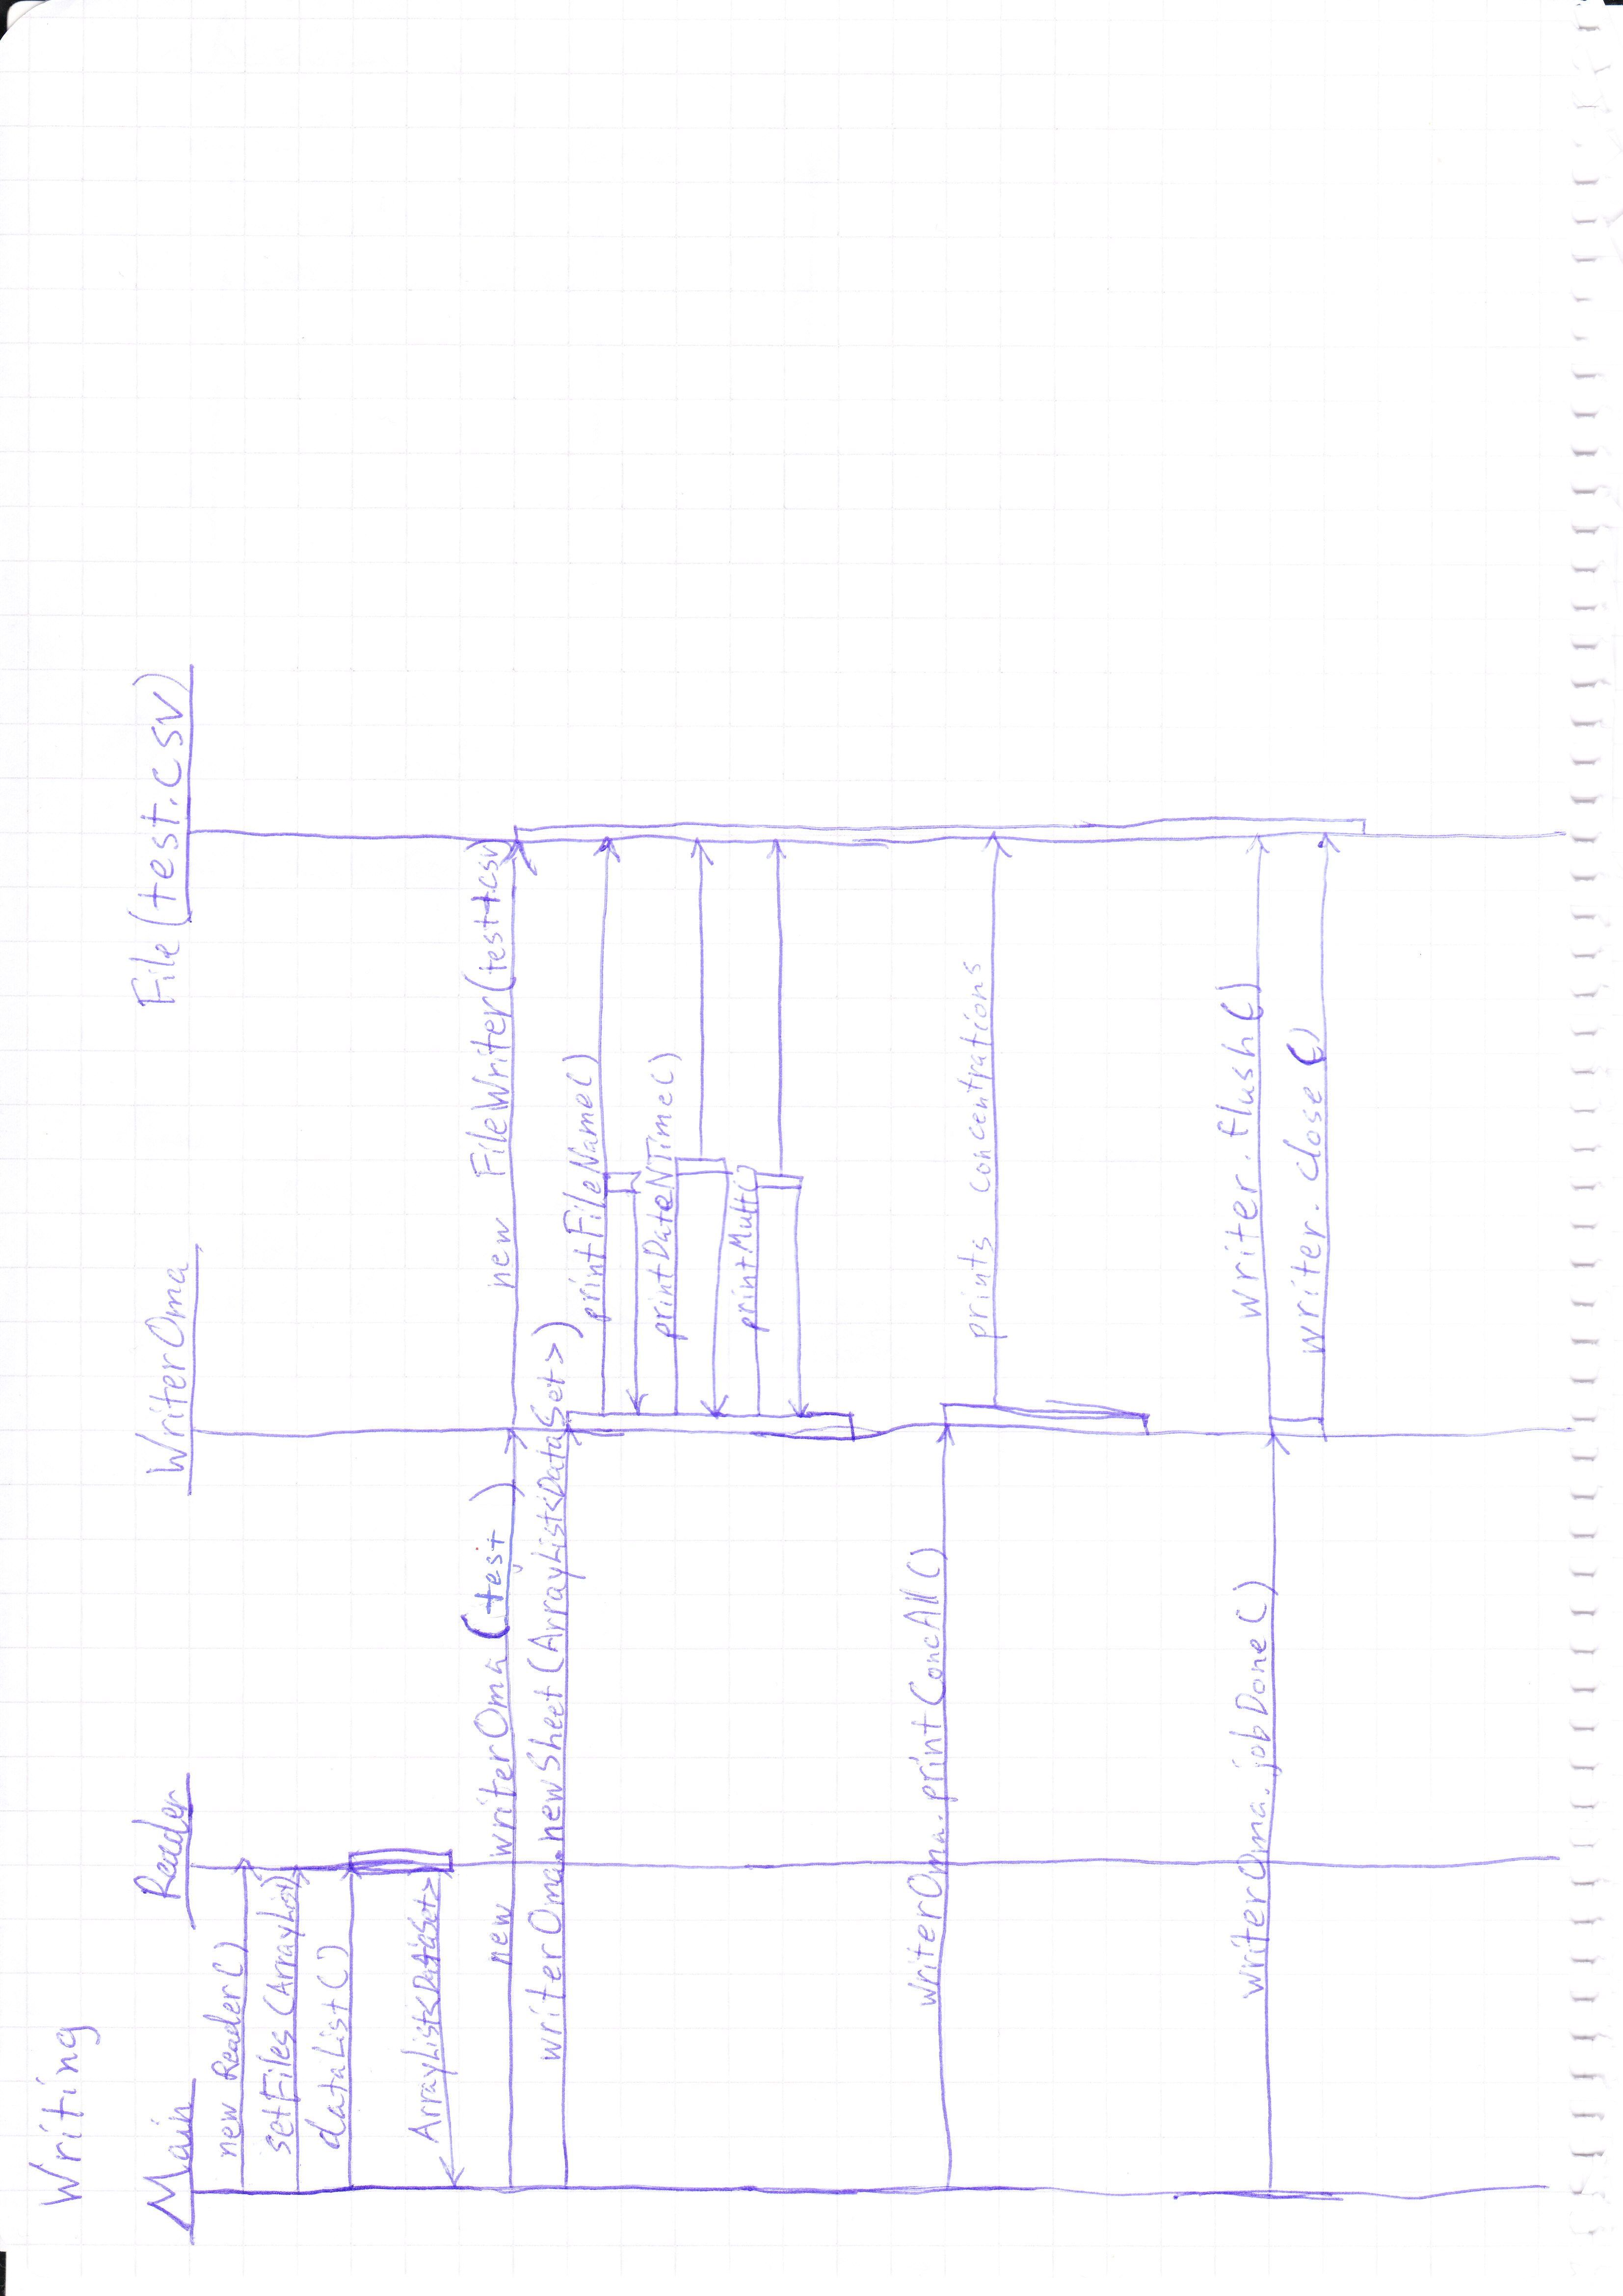 Writing
Main Reader WriterOma File(test.csv)
new Reader()
setFiles (ArrayList)
dataList()
ArrayList<DataSet>
new writerOma(test) new FileWriter(test+.csv)
writerOma.newSheet(ArrayList<DataSet>)
printFileName()
printDateNTime()
printMult()
writerOma.printConcAll()
prints concentrations
writerOma.jobDone() writer.flush()
writer.close()